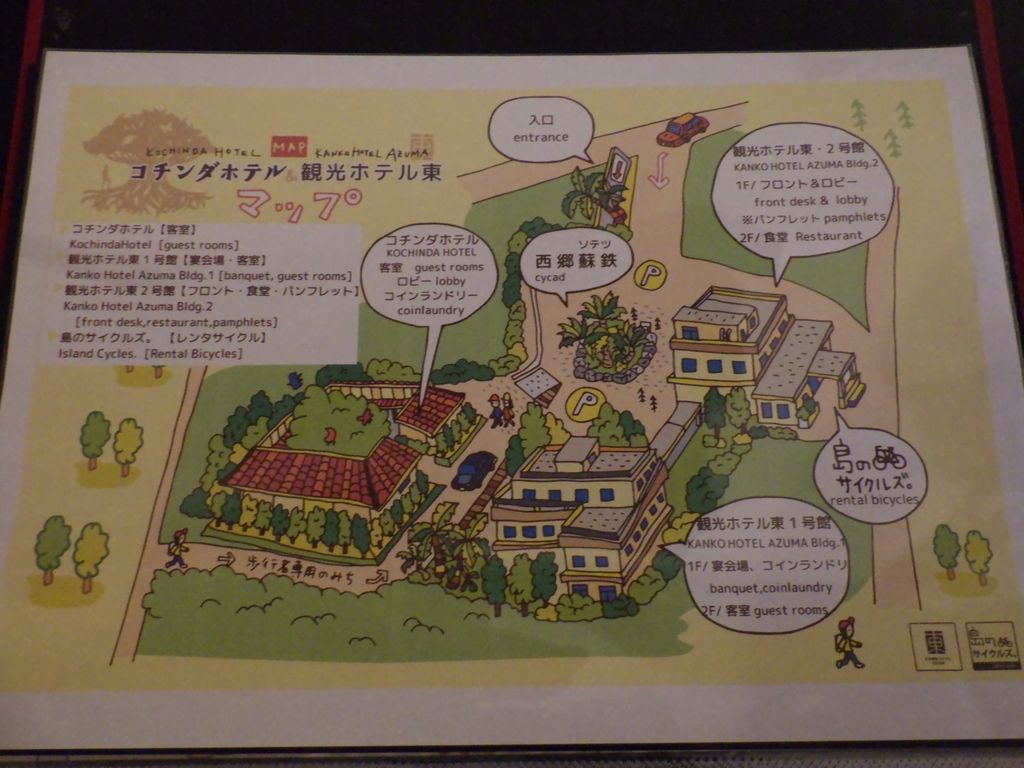 KOCHINDA HOTEL MAP KANKO HOTEL AZUMA
コチンダホテル&観光ホテル東
マップ
コチンダホテル【客室】
KochindaHotel [guest rooms]
観光ホテル東1号館【宴会場・客室】
Kanko Hotel Azuma Bldg.1 [banquet, guest rooms]
観光ホテル東2号館【フロント・食堂・パンフレット】
Kanko Hotel Azuma Bldg.2
[front desk,restaurant,pamphlets]
島のサイクルズ。【レンタサイクル】
Island Cycles. [Rental Bicycles]
入口
entrance
観光ホテル東・2号館
KANKO HOTEL AZUMA Bldg.2
1F/ フロント&ロビー
front desk & lobby
※パンフレット pamphlets
2F/ 食堂 Restaurant
コチンダホテル
KOCHINDA HOTEL
客室 guest rooms
ロビー lobby
コインランドリー
coinlaundry
ソテツ
西郷蘇鉄
cycad
P
P
島の
サイクルズ。
rental bicycles
観光ホテル東1号館
KANKO HOTEL AZUMA Bldg.1
1F/ 宴会場、コインランドリ
banquet,coinlaundry
2F/ 客室 guest rooms
歩行者専用のみち
東
島の
サイクルズ。